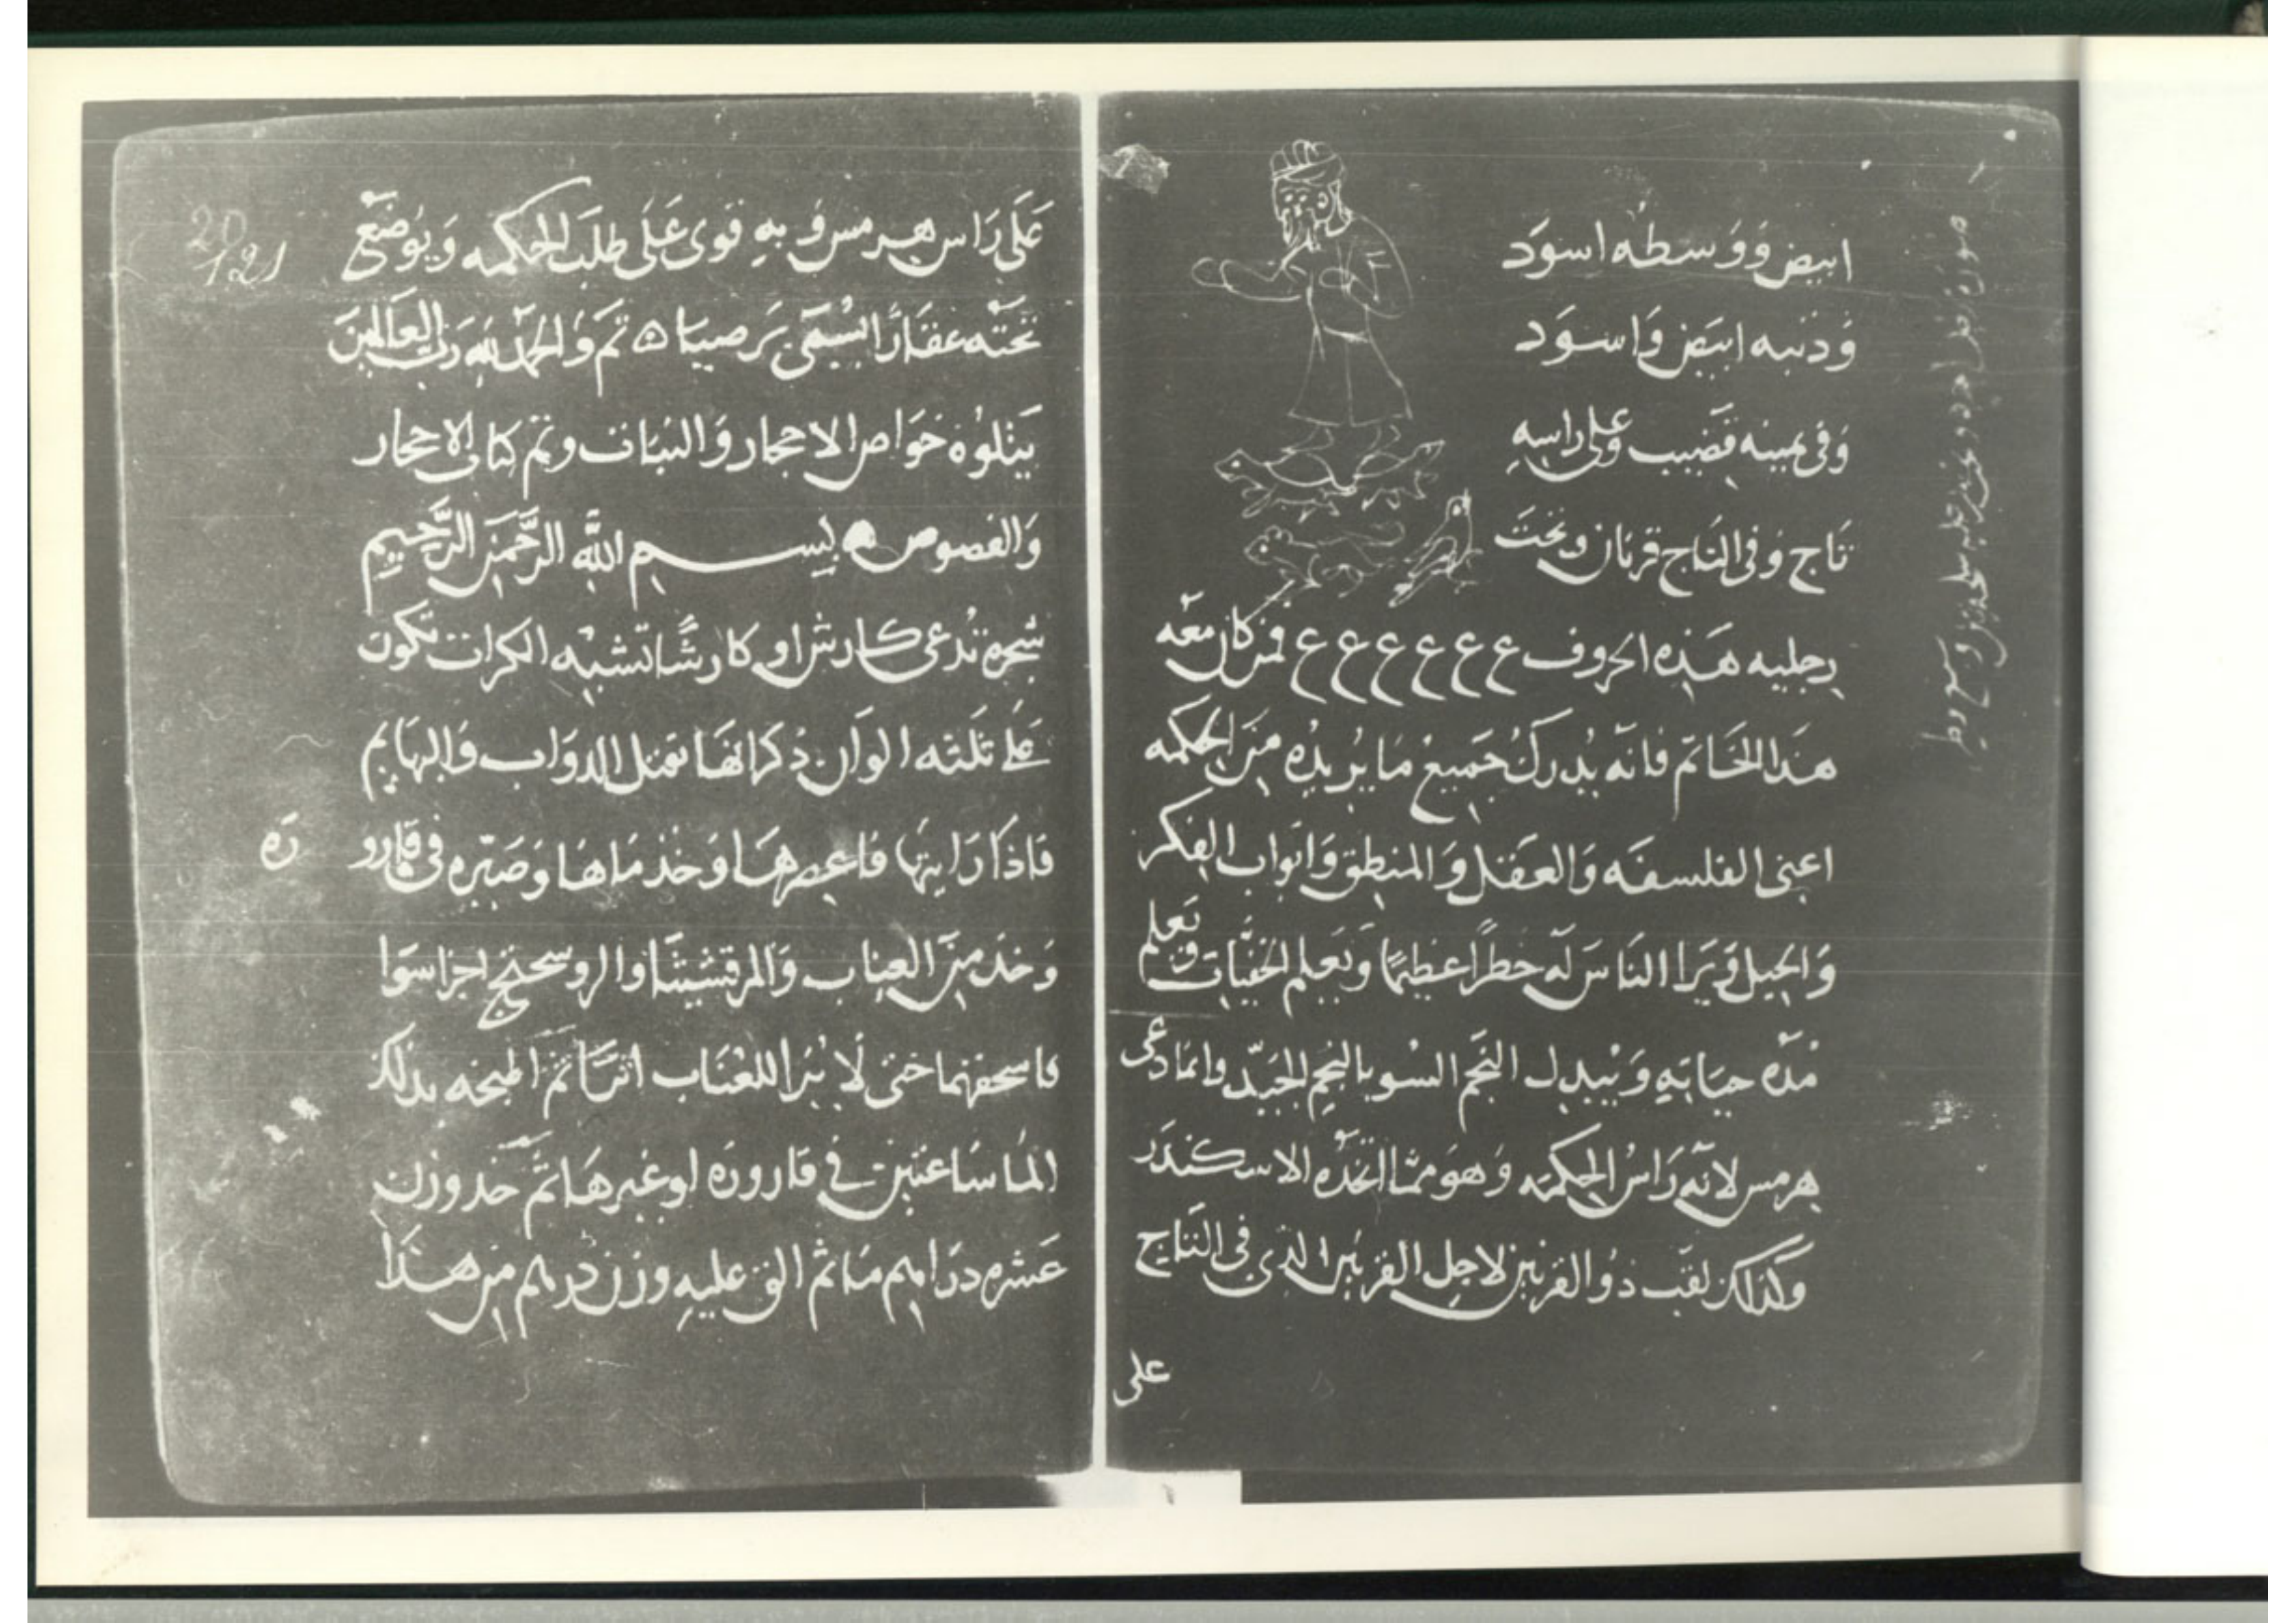 ابيض ووسطه اسود
وذنبه ابيض واسود
وفى يمينه قضيب وعلى راسه
تاج وفى التاج قرنان وتحت
رجليه هذه الحروف ع ع ع ع ع ع فمن كان معه
هذا الخاتم فانه يدرك جميع ما يريده من الحكمه
اعنى الفلسفه والعقل والمنطق وابواب الفكر
والحيل ويرا الناس له خطراً عظيماً ويعلم الخفيات وتعلم
مده حياته ويبدل النجم السو بالنجم الجيد وانما دعى
هرمس لانه راس الحكمه وهو مما اتخذه الاسكندر
وكذلك لقب ذو القرنين لاجل القرنين الذى فى التاج
على
20
121
على راس هرمس وبه قوى على طلب الحكمه ويوضع
تحته عقاراً يسمى برصيا ه تم والحمد لله رب العالمين
يتلوه خواص الاحجار والنبات وتم كتاب الاحجار
والفصوص ه بسم الله الرحمن الرحيم
شجره تدعى كارش او كارشا تشبه الكراث تكون
على ثلثه الوان ذكر انها تقتل الدواب والبهايم
فاذا رايتها فاعصرها وخذ ماها وصيره فى قارو ره
وخذ من العناب والمرقشيثا والروسختج اجزا سوا
فاسحقهما حتى لا يرا للعناب اثراً ثم اطبخه بذلك
الما ساعتين فى قاروره او غيرها ثم خذ وزن
عشره دراهم ما ثم الق عليه وزن درهم من هذا